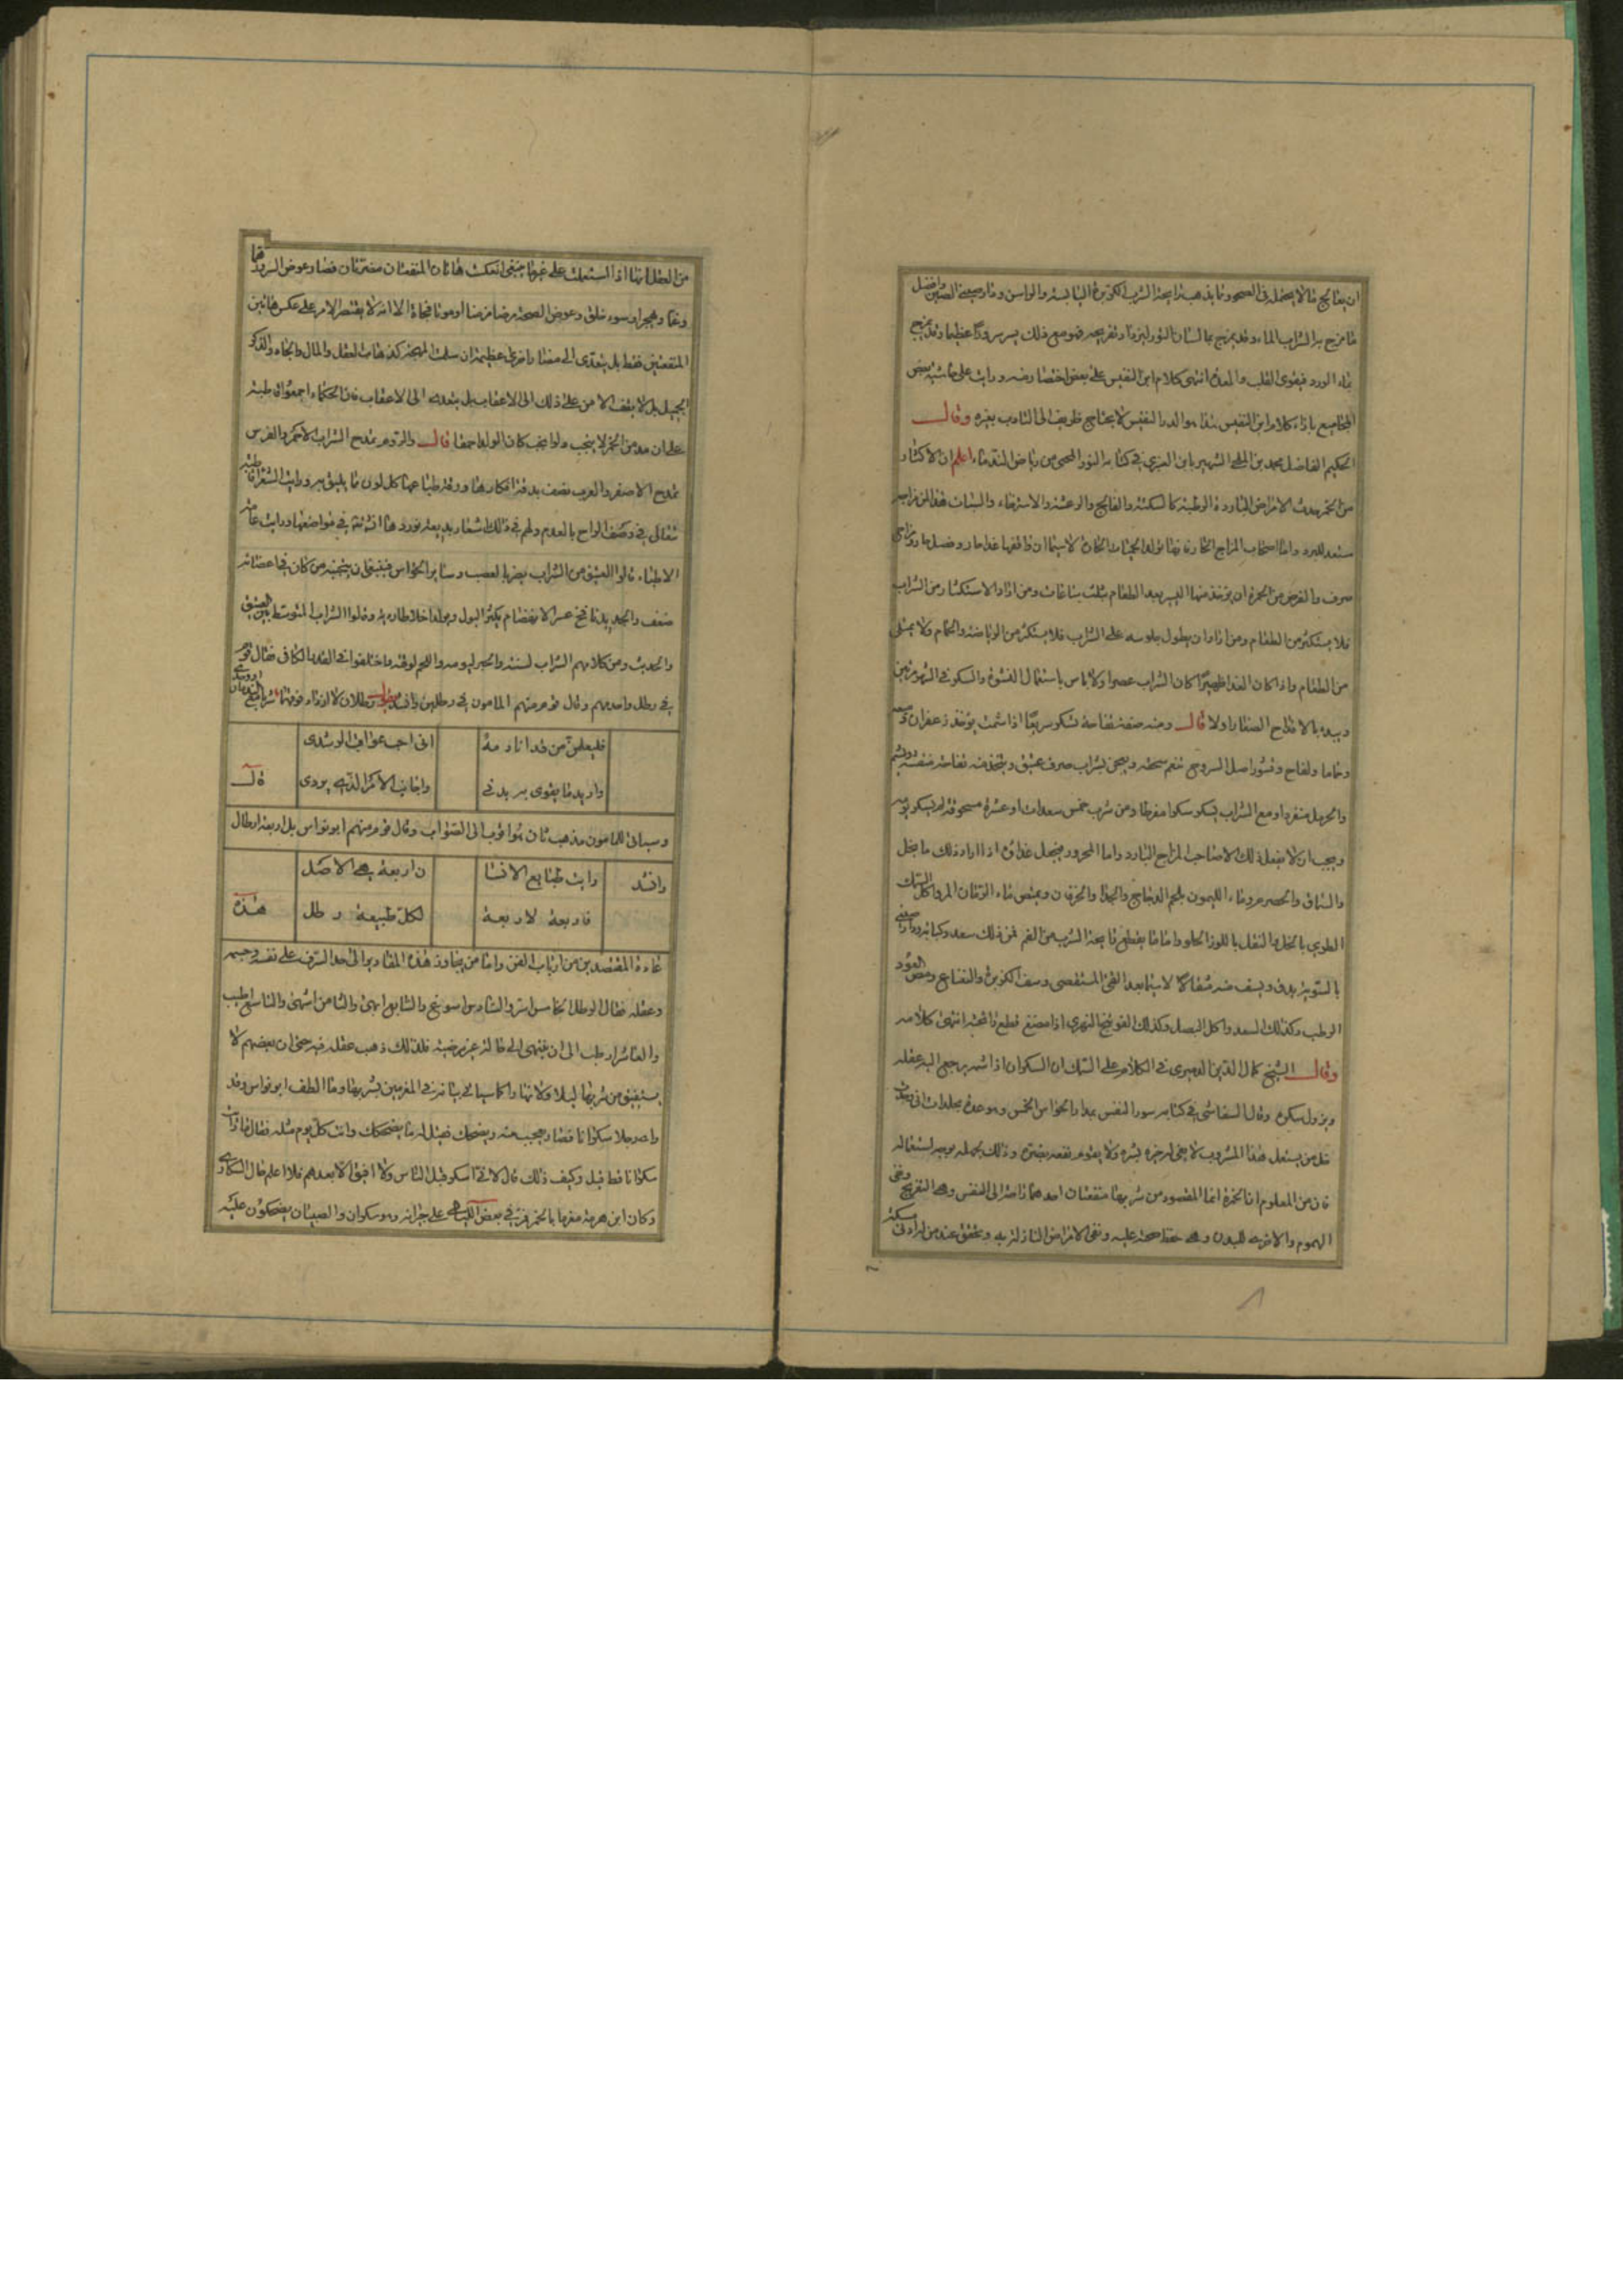 ان يعالج مالا يحتمله في الصحو وما يذهب رايحة الشرب الكزبرة اليابسة والراسن و وافضل
ما مزج به الشراب الماء وقد يمزج بماء لسان الثور ليزداد تفريحه فهو مع ذلك يسر سرورا عظيما وقد يمزج
بماء الورد فيقوى القلب والمعدة انتهى كلام ابن النفيس على بعض اختصار منه ورايت على حاشية بعض
المجاميع بازاء كلام ابن النفيس هذا هو الدر النفيس لا يحتاج ظريف الى التادب بغيره وقال
الحكيم الفاضل محمد بن الشهير بابن العزيزي في كتابه النور المجتبى من رياض الندماء اعلم ان الاكثار
من الخمر يحدث الامراض الباردة الرطبة كالسكتة والفالج والرعشة والاسترخاء والسبات هذا لمن مزاجه
مستعد للبرد واما اصحاب المزاج الحار فانها تولد الحميات الحادة لاسيما ان وافقها غذا حار وفصل حار ومزاجي
صرف والغرض من الخمرة ان يؤخذ منها اليسير بعد الطعام بثلث ساعات ومن اراد الاستكثار من الشراب
فلا يستكثر من الطعام ومن اراد ان يطول جلوسه على الشراب فلا يستكثر من الرياضة والحمام ولا يمتلي
من الطعام واذا كان الغدا ظهيرا كان الشراب عصرا ولا باس باستعمال النشوة والسكر في الشهر مرتين
ويبدا بالاقداح الصغار اولا قال ومنه صفة تفاحة تسكر سريعا اذا شمت يؤخذ زعفران وميعه
وخاما ولفاح وقشور اصل اليبروح ينعم سحقه ويعجن بشراب صرف عتيق ويتخذ منه تفاحة
والحرمل منفردا ومع الشراب يسكر سكرا مفرطا ومن شرب خمس سعدات او عشرة مسحوقة لم يسكر يومه
ويجب ان لا يفعل ذلك الا صاحب المزاج البارد واما المحرور فيجعل غداؤه اذا اراد ذلك ما بخل
والسماق والحصرم وماء الليمون بلحم الدجاج والجدا والخرفان ويمتص ماء الرمان المز واكل السمك
الطري بالخل والنقل باللوز الحلو واما ما يقطع رايحة الشرب من الفم فمن ذلك سعد وكبابة
بالسوية يدق ويسف منه مثقالا لاسيما بعد القي المستقصى وسف الكزبرة والنعناع ومص العود
الرطب وكذلك السعد واكل البصل وكذلك الفوتنج النهري اذا مضغ قطع رائحته انتهى كلامه
وقال الشيخ كمال الدين الدميري في الكلام على السمك ان السكران اذا شمه يرجع اليه عقله
ويزول سكره وقال التيفاشي في كتابه سرور النفس بمدارك الحواس الخمس وهو عدة مجلدات انى وجدت
قل من يستعمل هذا المشروب لا يفى لم خيره بشره ولا يقوم نفعه بضره وذلك لجهله بوجه استعماله
فان من المعلوم ان الخمرة انما المقصود من شربها منفعتان احدهما راجعة الى النفس وهي التفريح ونفى
الهموم والاخرى للبدن وهي حفظ صحته عليه ونفى الامراض النازلة به وتحقق عند من له ادنى مسكة
من العقل انها اذا استعملت على غير ما ينبغي انعكست هاتان المنفعتان مضرتان فصار عوض السرور هما
وغما وهجرا وسوء خلق وعوض الصحة مرضا مزمنا او موتا فجاة الا انه لا يقتصر الامر على عكس هاتين
المنفعتين فقط بل يتعدى الى مضار اخرى عظيمة ان سلمت المهجة كذهاب العقل والمال والجاه والذكر
الجميل بل لا يقف الامر على ذلك الى الاعقاب بل يتعداه الى الاعقاب فان الحكماء اجمعوا قاطبة
على ان مدمن الخمر لا ينجب ولو انجب كان الولد احمقا قال والروم تمدح الشراب الاحمر والفرس
تمدح الاصفر والعرب تصف بدقة افكارها ورقة طباعها كل لون ما يليق به ورايت الشعرا قاطبة
تتغالى في وصف الراح بالقدم ولهم في ذلك اشعار بديعة نوردها انشاء الله في مواضعها ورايت عامة
الاطباء قالوا العتيق من الشراب يضر بالعصب وسائر الحواس فينبغي ان يتجنبه من كان في اعضائه
ضعف والجديد نافخ عسر الانهضام يكثر البول ويولد اخلاطا ردية وقالوا الشراب المتوسط بين العتيق
والحديث ومن كلامهم الشراب لسنته والخبز ليومه واللحم لوقته واختلفوا في القدر الكافي فقال قوم
في رطل واحد وقال قوم منهم المامون في رطلين وانشد رطلان لا ازداد فوقهما شربا
فليعلمن من قد انادمه
انى احب عواقب الرشدى
واريد ما يقوى به بدنى
واجانب الامر الذي يردى
قال
وسياتي للمامون مذهب ثان هو اقرب الى الصواب وقال قوم منهم ابو نواس بل اربعة ارطال
وانشد
رايت طبايع الانسا
ن اربعة هي الاصل
فاربعة لاربعة
لكل طبيعة رطل
هذه
عادة المقتصدين من ارباب الفن واما من يجاوز هذه المقادير الى حد السرف على نفسه وجسمه
وعقله فقال الرطل الخامس اسر والسادس اسوغ والسابع ابهى والثامن اشهى والتاسع اطيب
والعاشر ارطب الى ان ينتهى الى حالة غير مرضية فلذلك ذهب عقله فيه حتى ان بعضهم لا
يستفيق من شربها ليلا ولا نهارا كما سياتي بيانه في المغرمين بشربها وما الطف ابو نواس وقد
راى رجلا سكرانا فصار يعجب منه ويضحك فقيل له ما يضحكك وانت كل يوم مثله فقال ما رايت
سكرانا قط قيل وكيف ذلك قال لاني اسكر قبل الناس ولا افيق الا بعدهم فلا اعلم حال السكارى
وكان ابن هرمة مغرما بالخمر فمر في بعض الليالي على جيرانه وهو سكران والصبيان يضحكون عليه